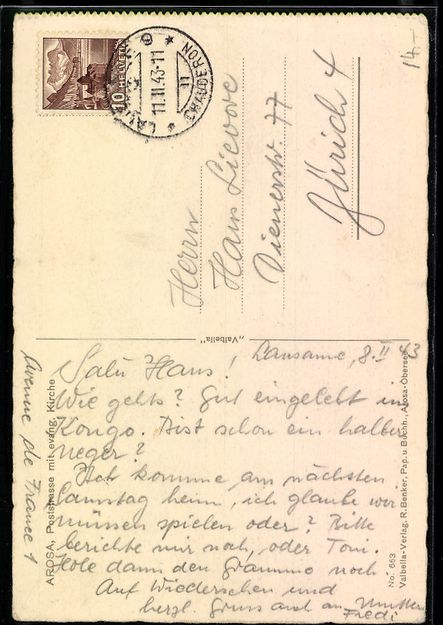 14.-
10 HELVETIA
LAUSANNE
11.II.43-11
CHAUDERON
Herrn
Hans Lievore
Dienerstr. 77
Zürich 4
„Valbella"
Lausanne, 8.II 43
Salü Hans!
Wie gehts? Gut eingelebt im
Kongo. Bist schon ein halber
neger?
Ich komme am nächsten
Samstag heim, ich glaube wir
müssen spielen oder? Bitte
berichte mir noch, oder Toni.
Hole dann den Grammo noch
Auf Wiedersehen und
herzl. Gruss auch an Mutter
Fredi
Avenue de France 1
AROSA, Poststrasse mit evang. Kirche
No. 663
Valbella-Verlag, R. Benker, Pap. u. Buchh., Arosa-Obersee